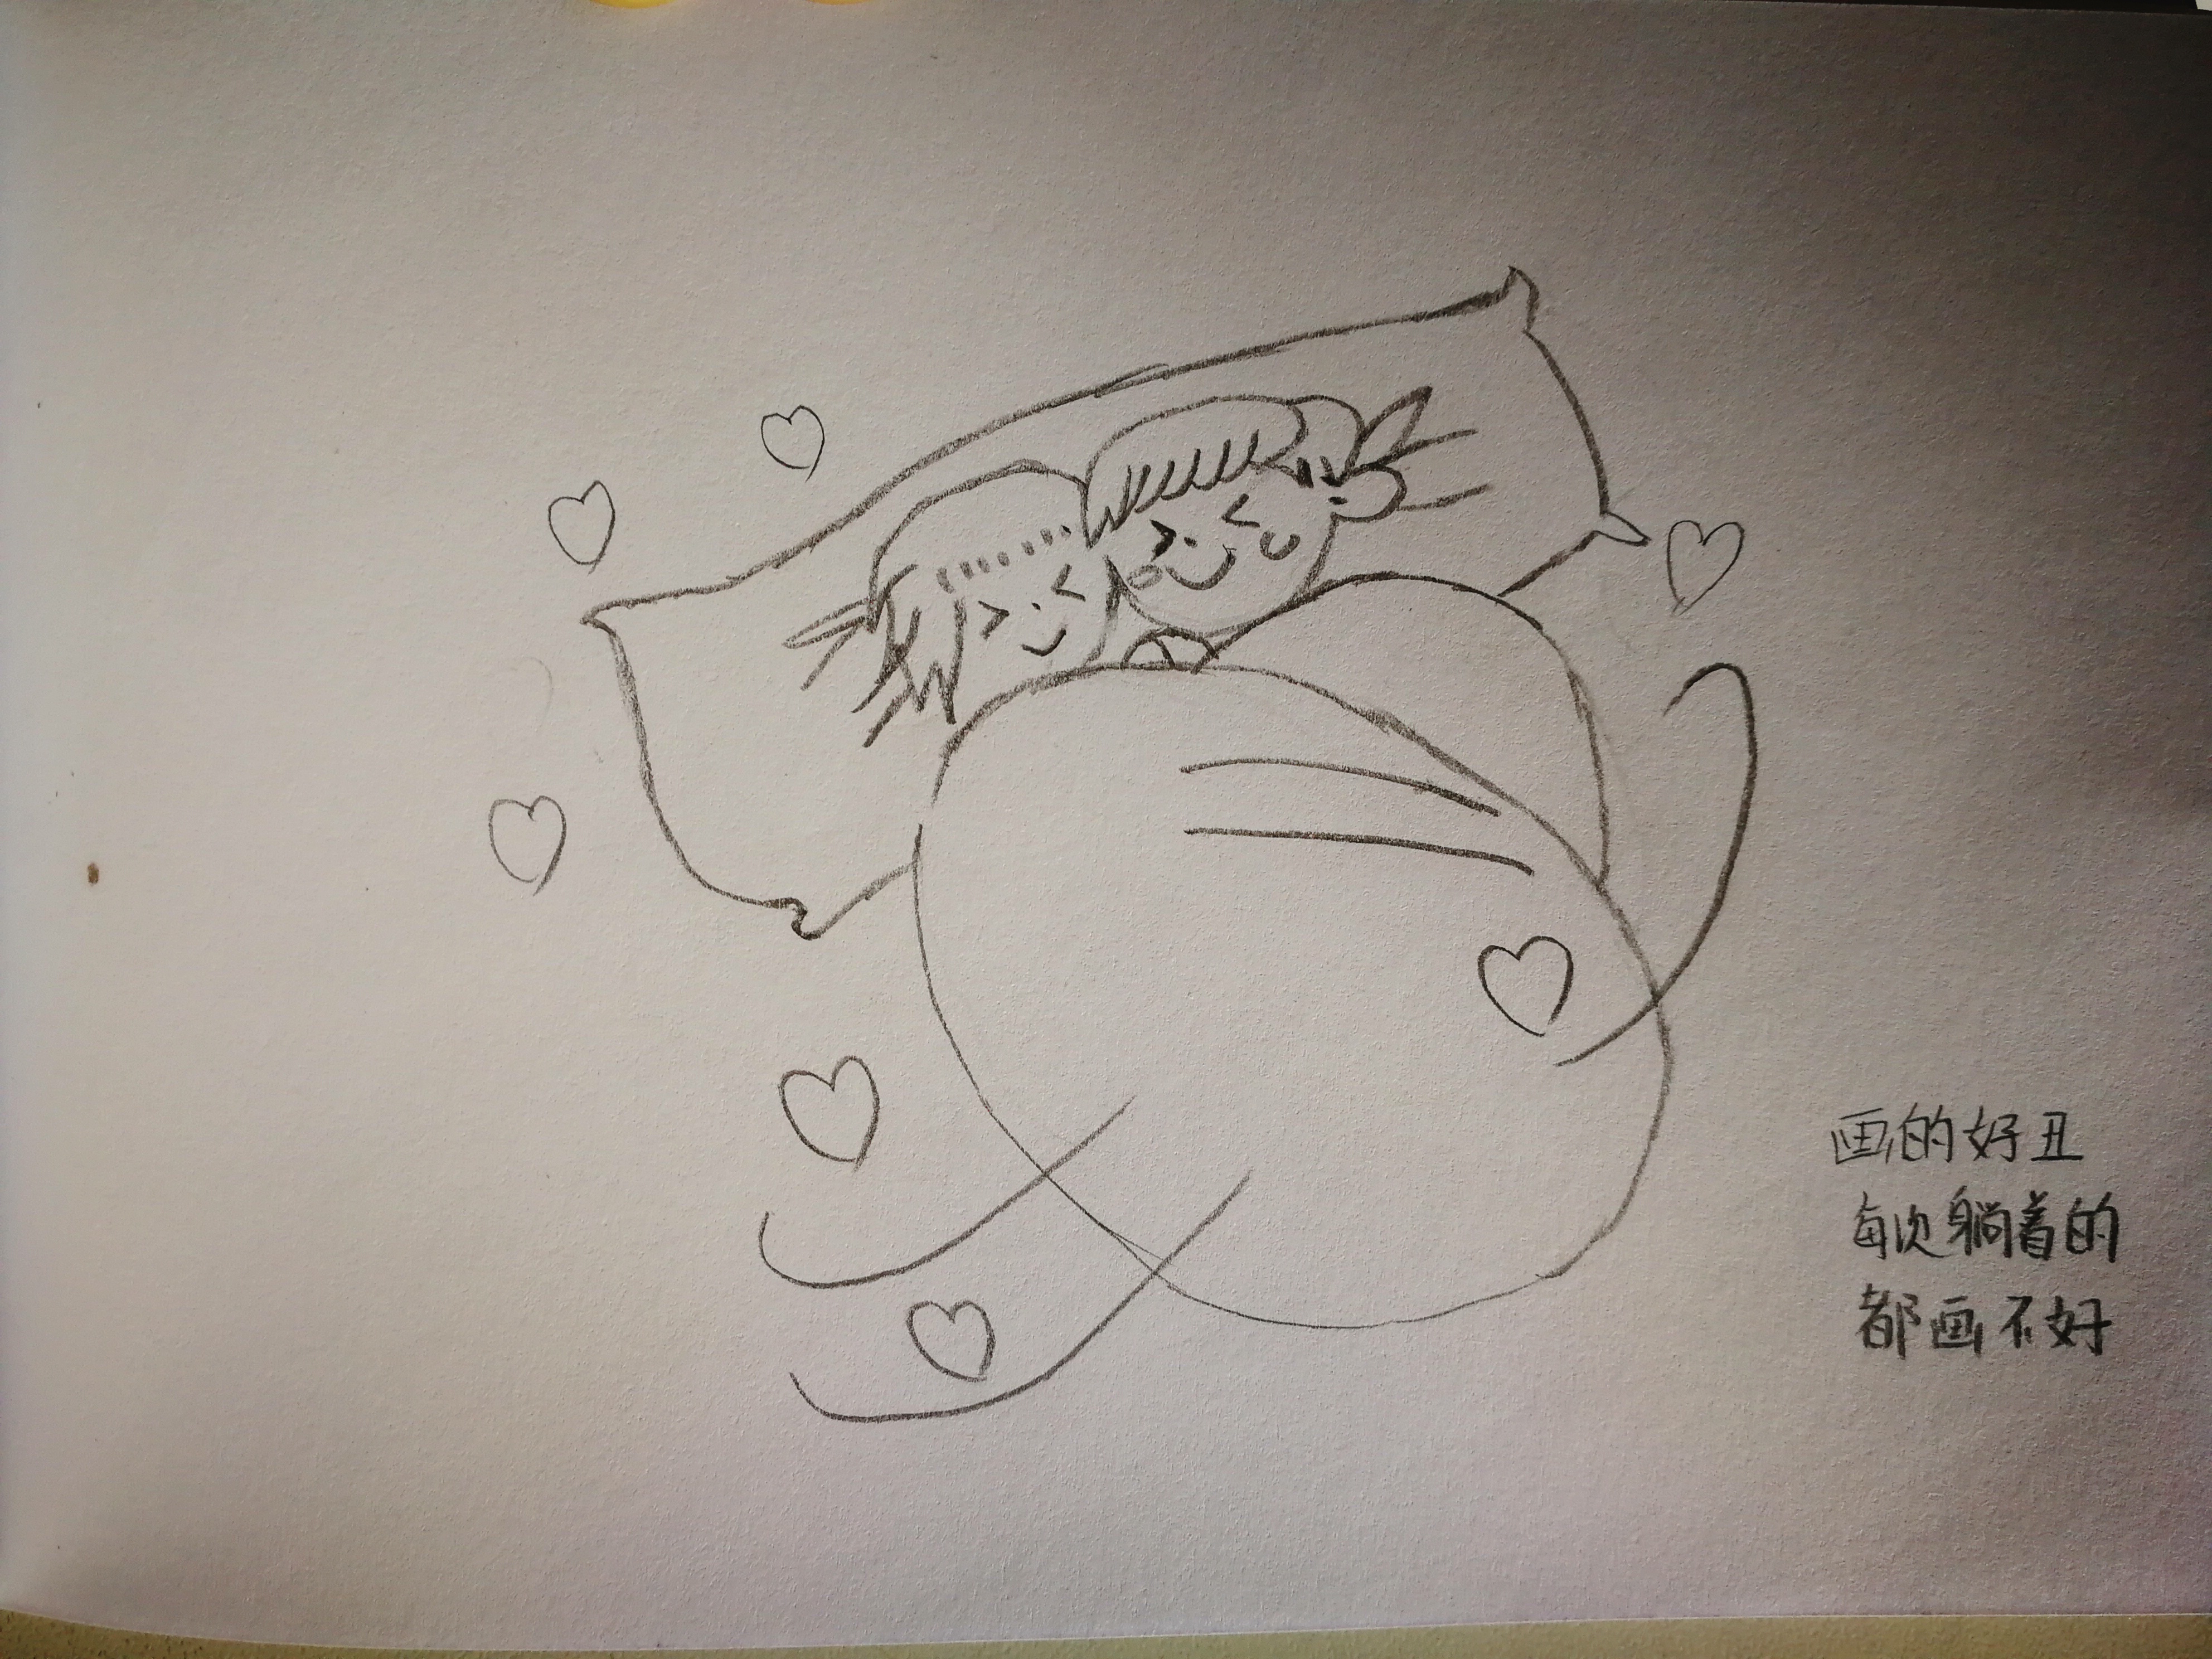 画的好丑
每次躺着的
都画不好